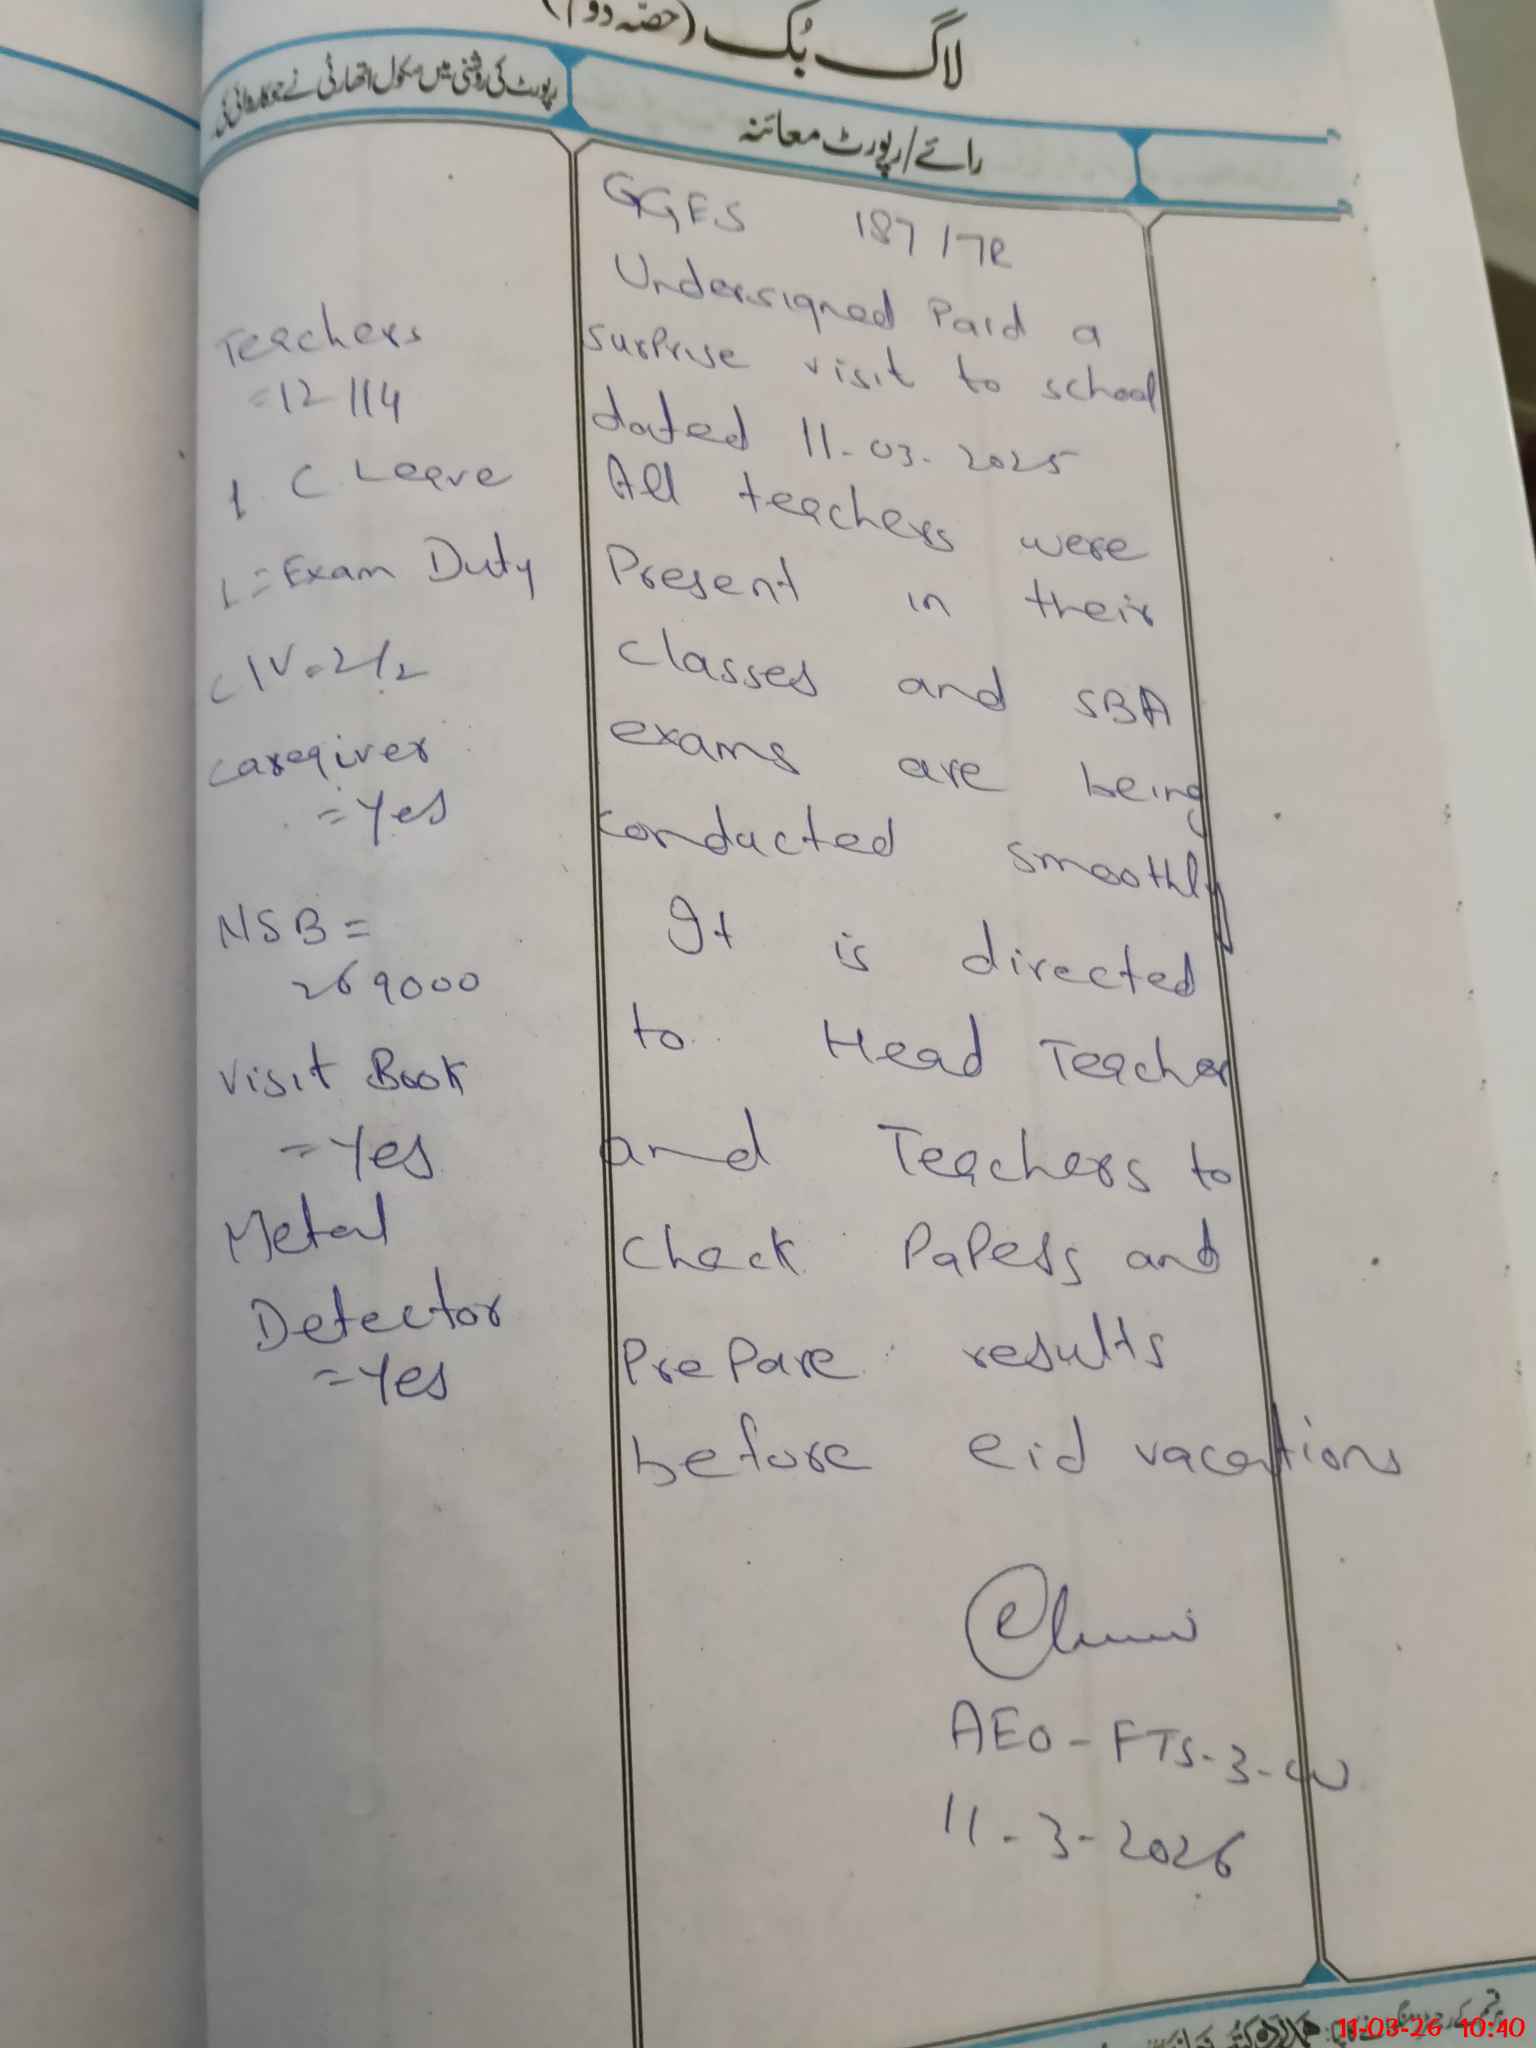 لاگ بُک (حصّہ دوم)
رائے/رپورٹ معائنہ
رپورٹ کی روشنی میں سکول اتھارٹی نے جو کاروائی کی۔
GGES 187/7R
Undersigned Paid a
surprise visit to school
dated 11-03-2025
All teachers were
Present in their
classes and SBA
exams are being
conducted smoothly
It is directed
to Head Teacher
and Teachers to
check Papers and
PrePare results
before eid vacations
AEO-FTS-3-W
11-3-2026
Teachers
=12/14
1 C Leave
1=Exam Duty
C IV=2/2
caregiver
=Yes
NSB=
269000
Visit Book
=Yes
Metal
Detector
=Yes
11-03-26 10:40